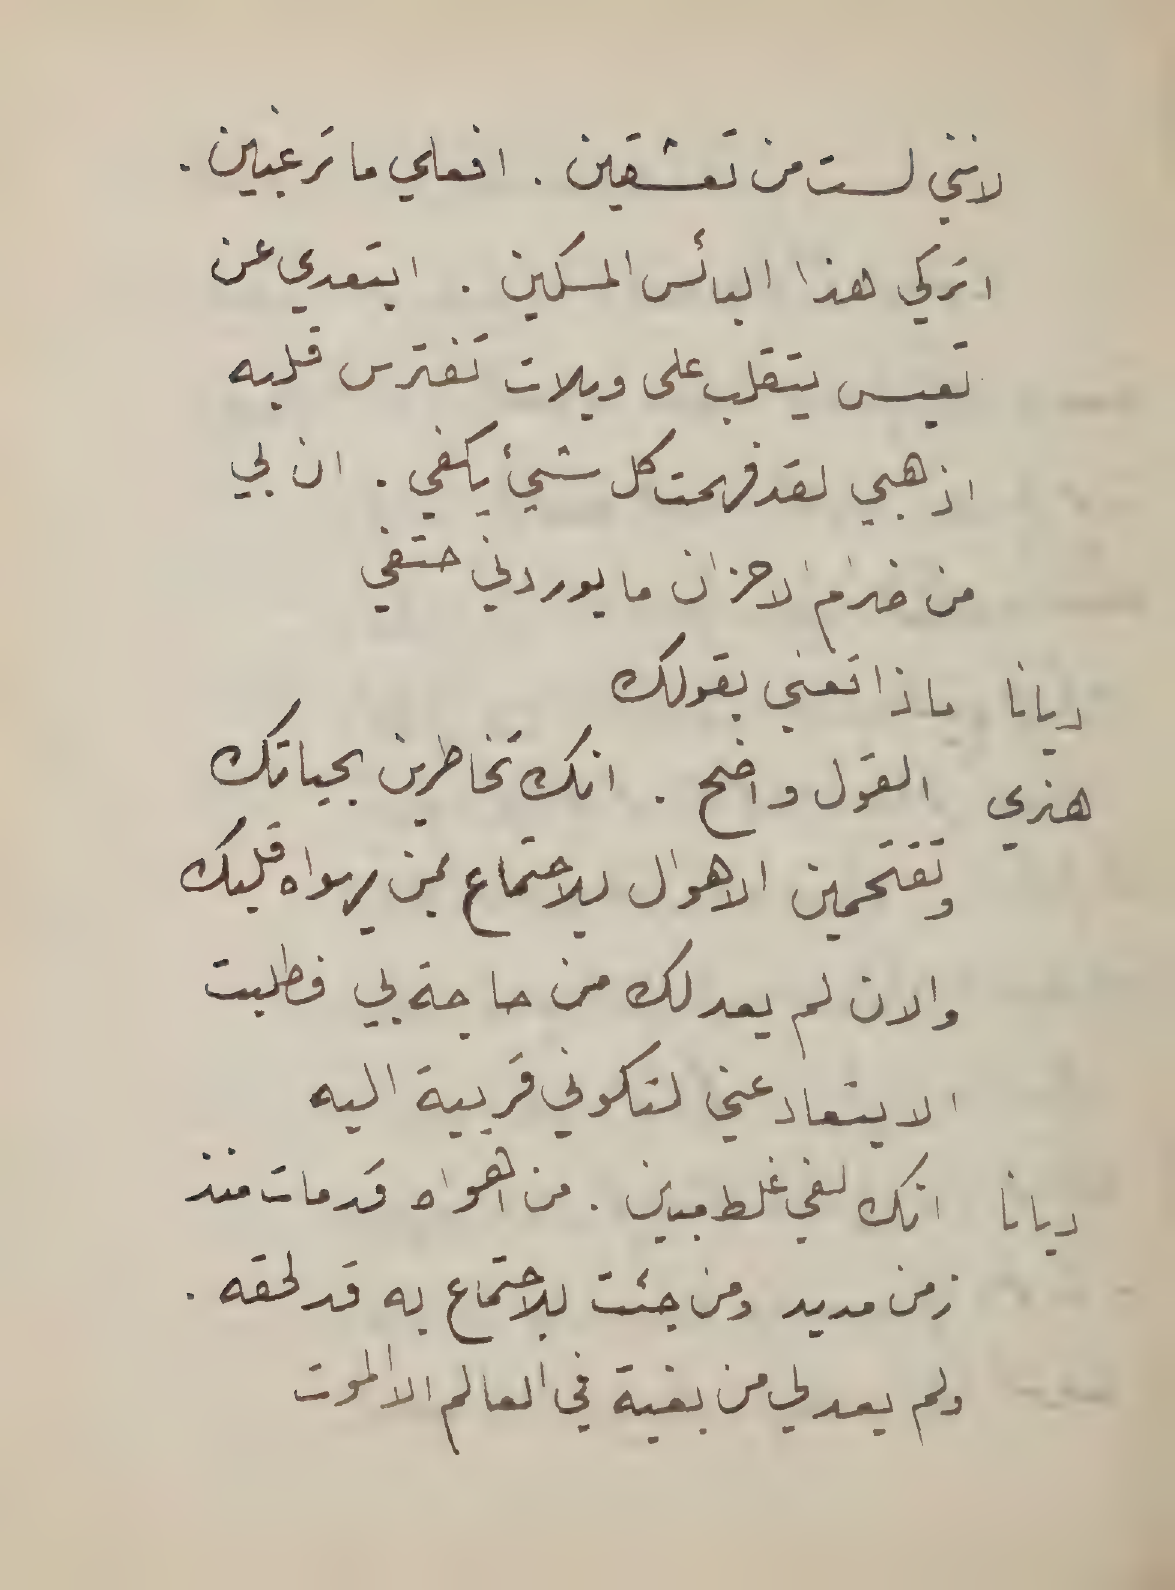 لانني لست من تعشقين . افعلي ما ترغبين .
اتركي هذا البائس المسكين . ابتعدي عن
تعيس يتقلب على ويلات تفترس قلبه
اذهبي لقد فهمت كل شيئ يكفي . ان لي
من ضرام الاحزان ما يوردني حتفي
ديانا ماذا تعني بقولك
هنري القول واضح . انك تخاطرين بحياتك
وتقتحمين الاهوال للاجتماع بمن يهواه قلبك
والان لم يعد لك من حاجة بي فطلبت
الابتعاد عني لتكوني قريبة اليه
ديانا انك لفي غلط مبين . من اهواه قد مات منذ
زمن مديد ومن جئت للاجتماع به قد لحقه .
ولم يعد لي من بغية في العالم الا الموت